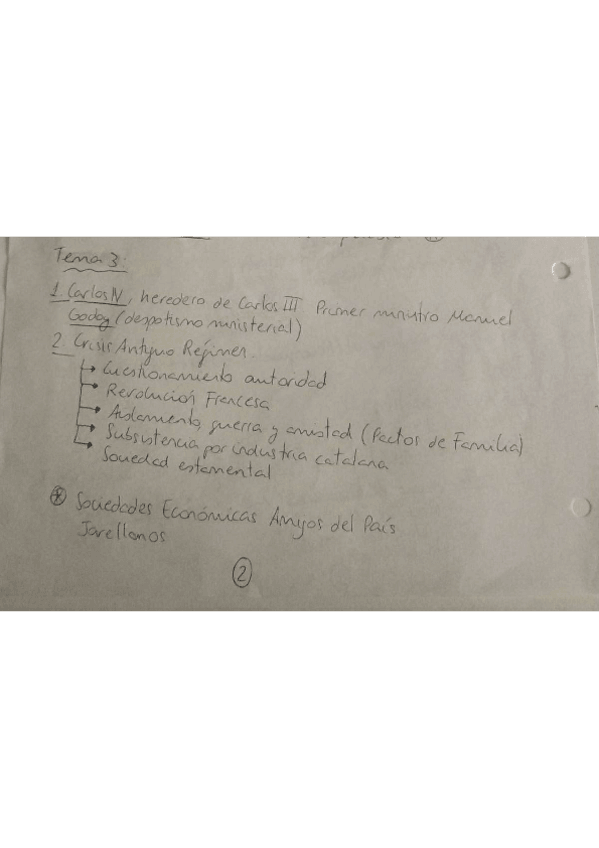 Tema 3:
1. Carlos IV, heredero de Carlos III Primer ministro Manuel
Godoy (despotismo ministerial)
2. Crisis Antiguo Régimen.
Cuestionamiento autoridad
Revolución Francesa
Aislamiento, guerra y amistad (Pactos de Familia)
Subsistencia por industria catalana
Sociedad estamental
Sociedades Económicas Amigos del País
Jovellanos
2